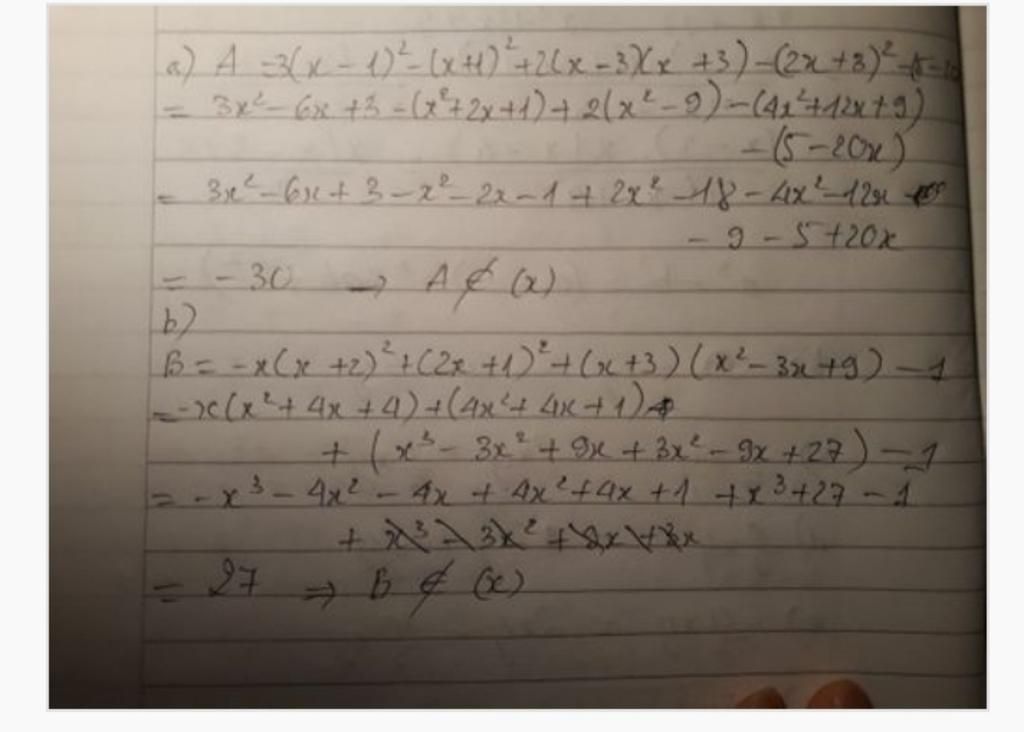 a) A = 3(x - 1)² - (x+1)² + 2(x - 3)(x + 3) - (2x + 3)² - (5 - 20
= 3x² - 6x + 3 - (x² + 2x + 1) + 2(x² - 9) - (4x² + 12x + 9)
- (5 - 20x)
= 3x² - 6x + 3 - x² - 2x - 1 + 2x² - 18 - 4x² - 12x
- 9 - 5 + 20x
= - 30 → A ∉ (x)
b)
B = -x(x + 2)² + (2x + 1)² + (x + 3)(x² - 3x + 9) - 1
= -x(x² + 4x + 4) + (4x² + 4x + 1)
+ (x³ - 3x² + 9x + 3x² - 9x + 27) - 1
= - x³ - 4x² - 4x + 4x² + 4x + 1 + x³ + 27 - 1
+ x³ - 3x²
= 27 ⇒ B ∉ (x)